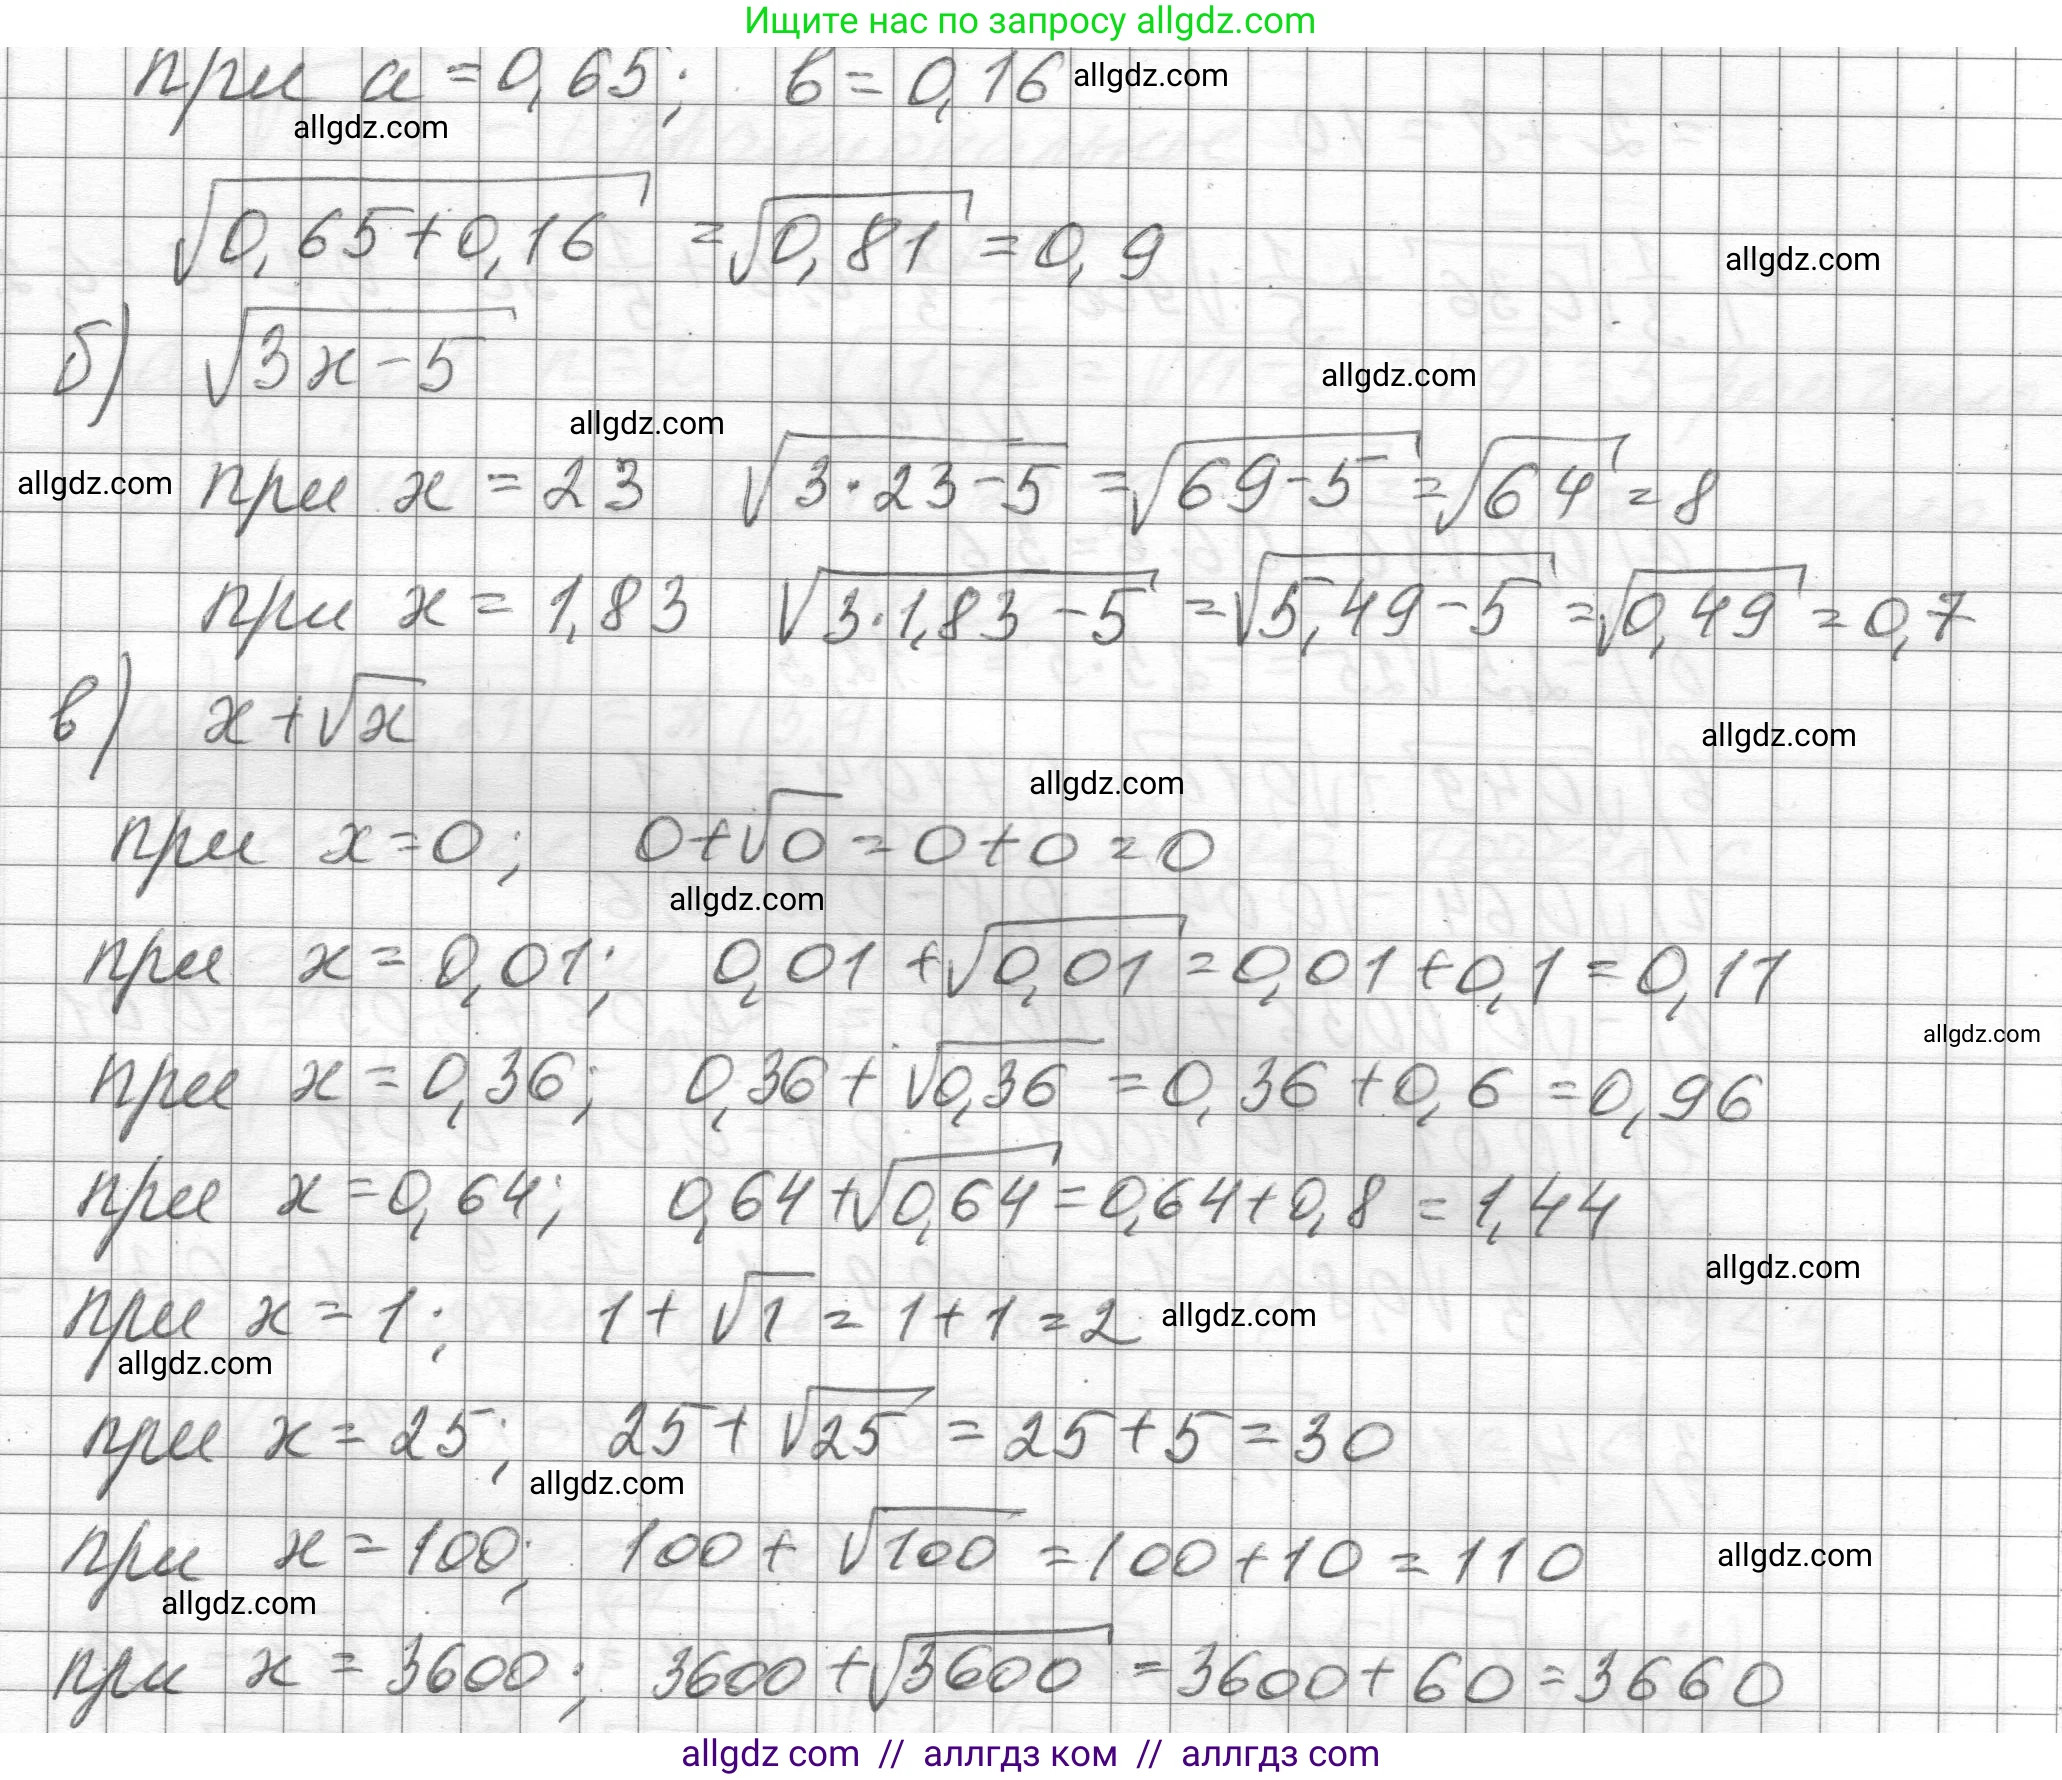 Ищите нас по запросу allgdz.com
при a = 0,65; b = 0,16 allgdz.com
allgdz.com
√(0,65+0,16) = √(0,81) = 0,9
allgdz.com
б) √(3x-5)
allgdz.com
allgdz.com
allgdz.com при x = 23 √(3·23-5) = √(69-5) = √(64) = 8
при x = 1,83 √(3·1,83-5) = √(5,49-5) = √(0,49) = 0,7
в) x+√x
allgdz.com
allgdz.com
при x=0; 0+√0 = 0+0 = 0
allgdz.com
при x = 0,01; 0,01 + √(0,01) = 0,01 + 0,1 = 0,11
allgdz.com
при x = 0,36; 0,36 + √(0,36) = 0,36 + 0,6 = 0,96
при x = 0,64; 0,64 + √(0,64) = 0,64 + 0,8 = 1,44
allgdz.com
при x = 1; 1 + √1 = 1 + 1 = 2 allgdz.com
allgdz.com
при x = 25; 25 + √(25) = 25 + 5 = 30
allgdz.com
при x = 100; 100 + √(100) = 100 + 10 = 110 allgdz.com
allgdz.com
при x = 3600; 3600 + √(3600) = 3600 + 60 = 3660
allgdz com // аллгдз ком // аллгдз com